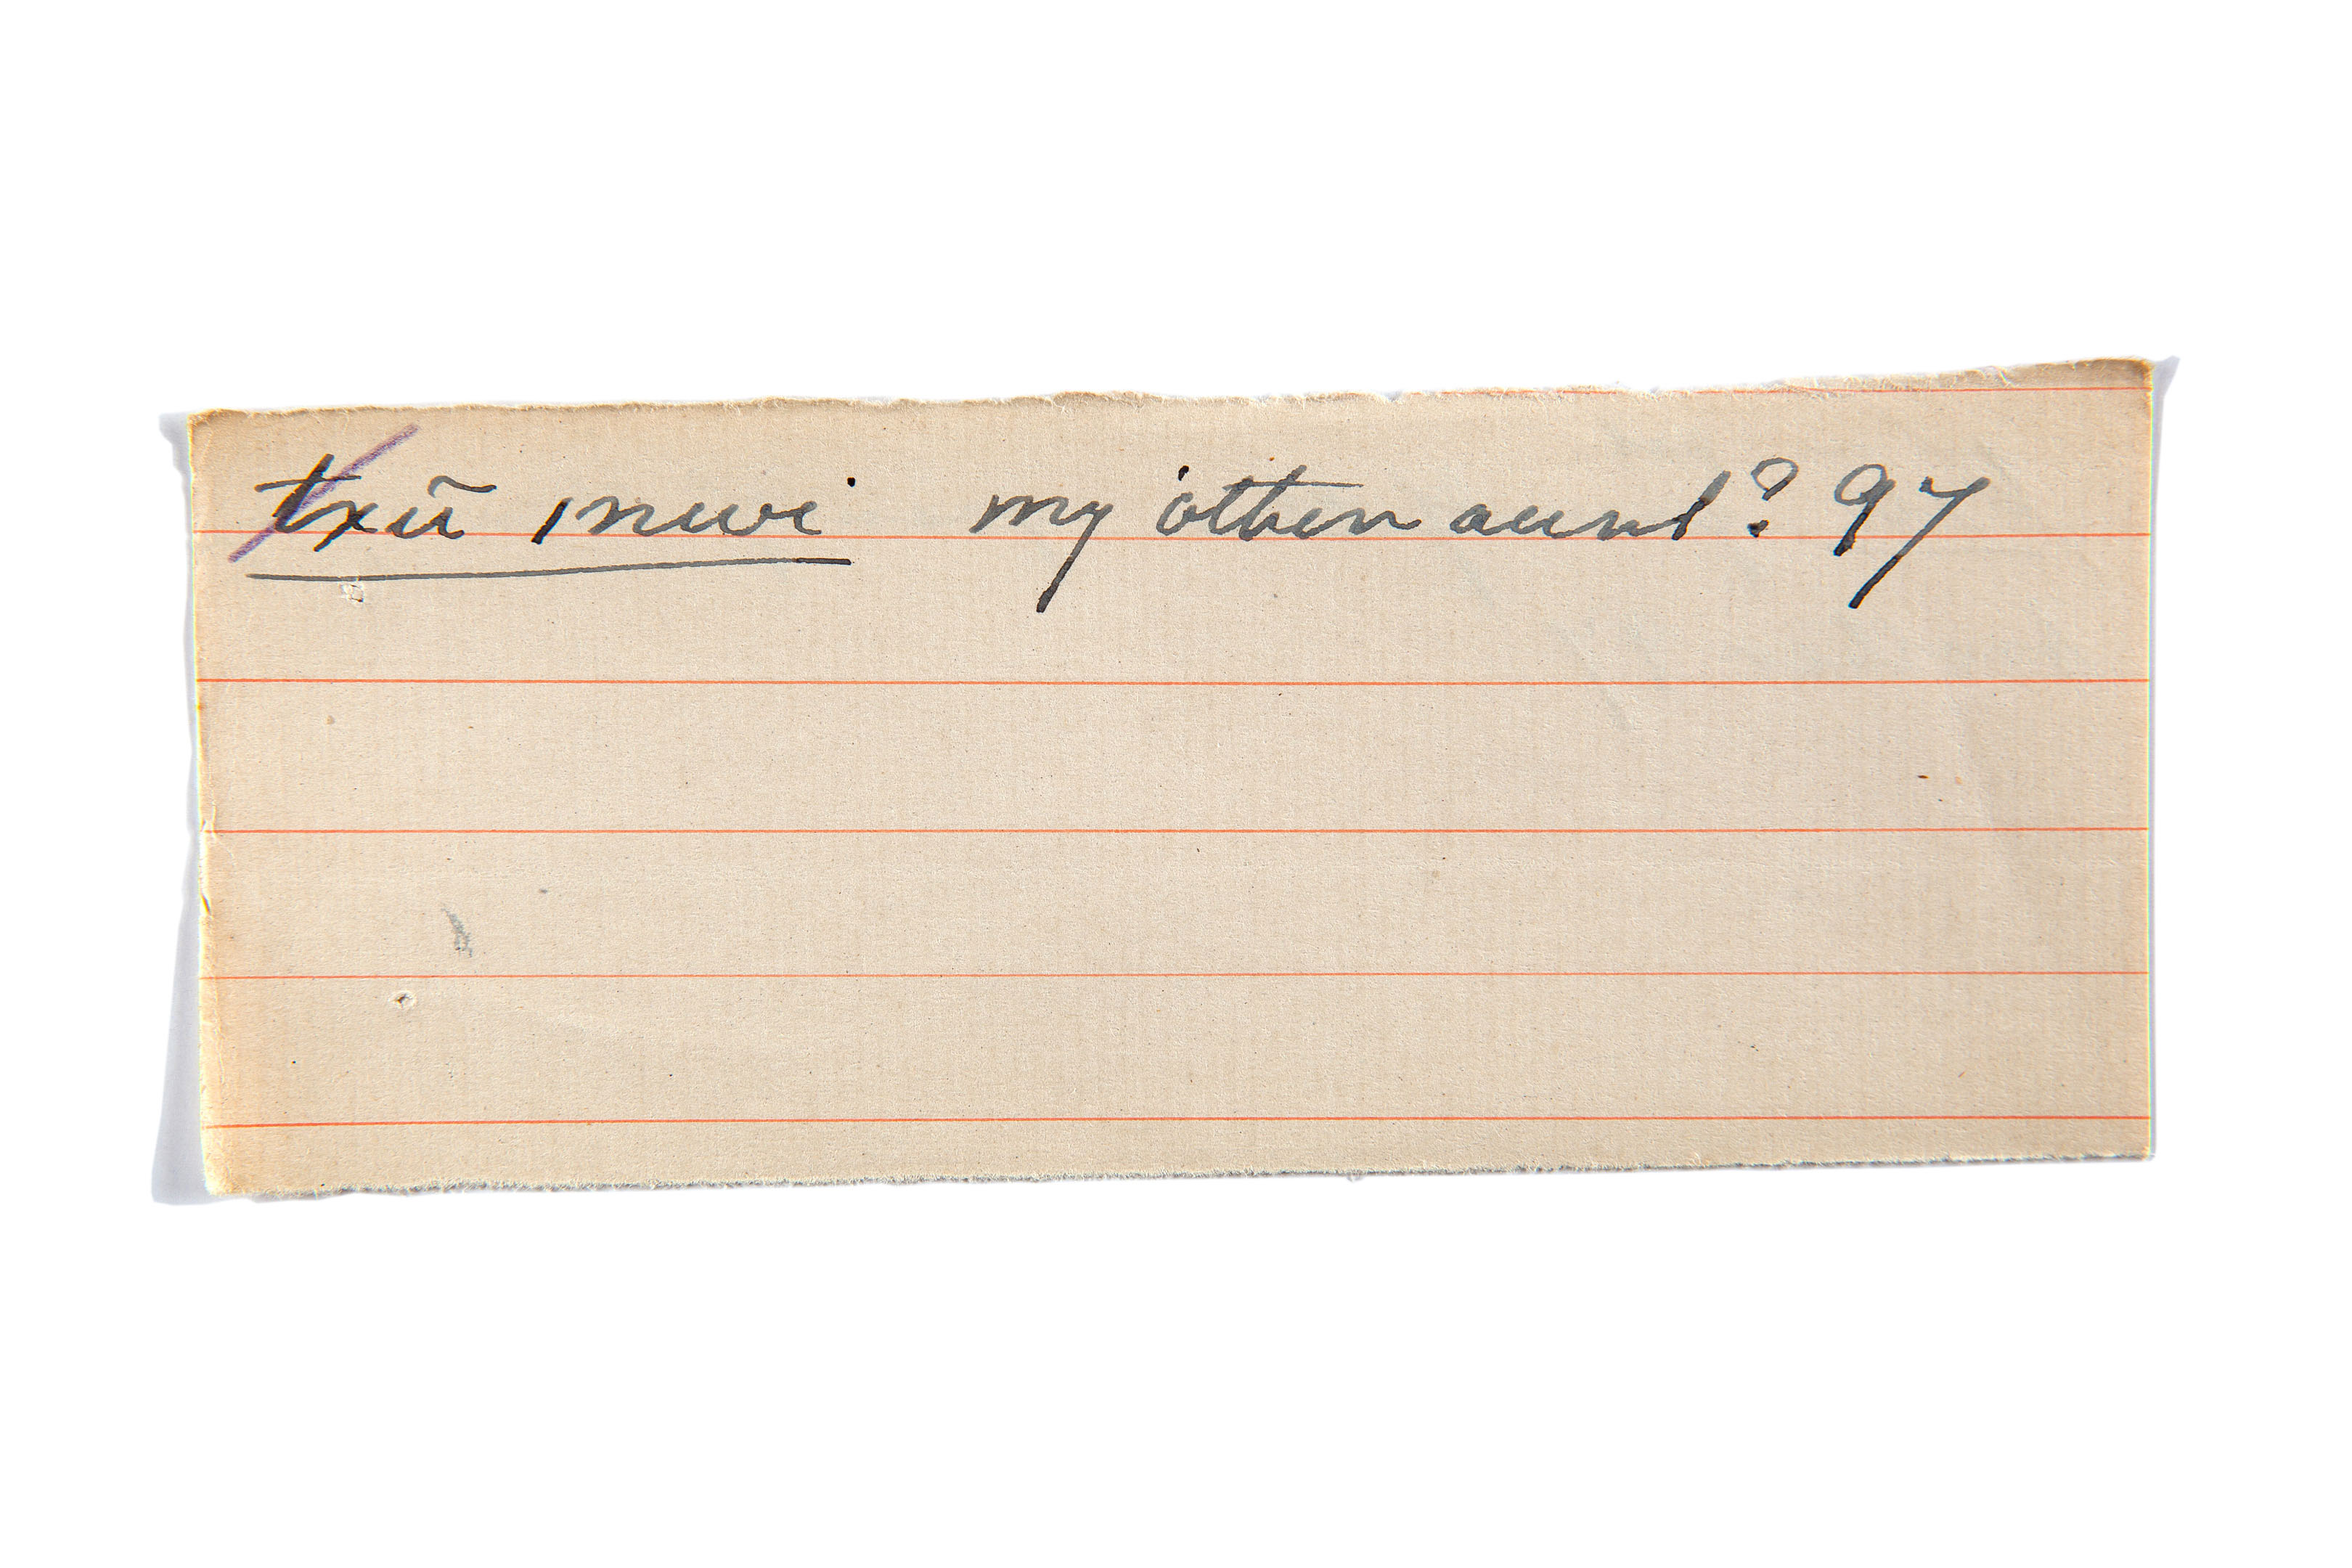 txū ınıwi my other aunt? 97